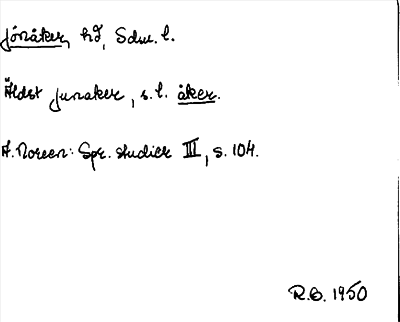 Jönåker, hd, Sdm. l.
Äldst junaker, s.l. åker.
A. Noreen: Spr. studier III, s. 104.
R.G. 1950